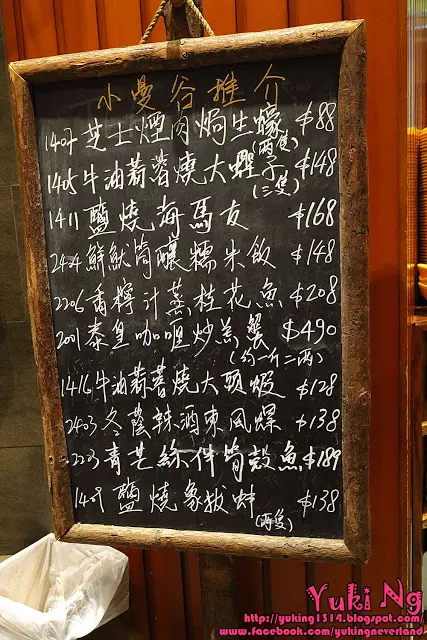 小曼谷推介
1407 芝士煙肉焗生蠔 (兩隻) $88
1405 牛油蒜蓉燒大蟶子 (三隻) $148
1411 鹽燒海馬友 $168
2424 鮮魷筒釀糯米飯 $148
2206 香檸汁蒸桂花魚 $208
2001 泰皇咖喱炒羔蟹 $490
(約一斤二兩)
1416 牛油蒜蓉燒大頭蝦 $128
2403 冬蔭辣酒東風螺 $138
2223 青芒絲伴筍殼魚 $189
1409 鹽燒象拔蚌 $138
(兩隻)
Yuki Ng
http://yuking1314.blogspot.com
www.facebook.com/yukingneverland